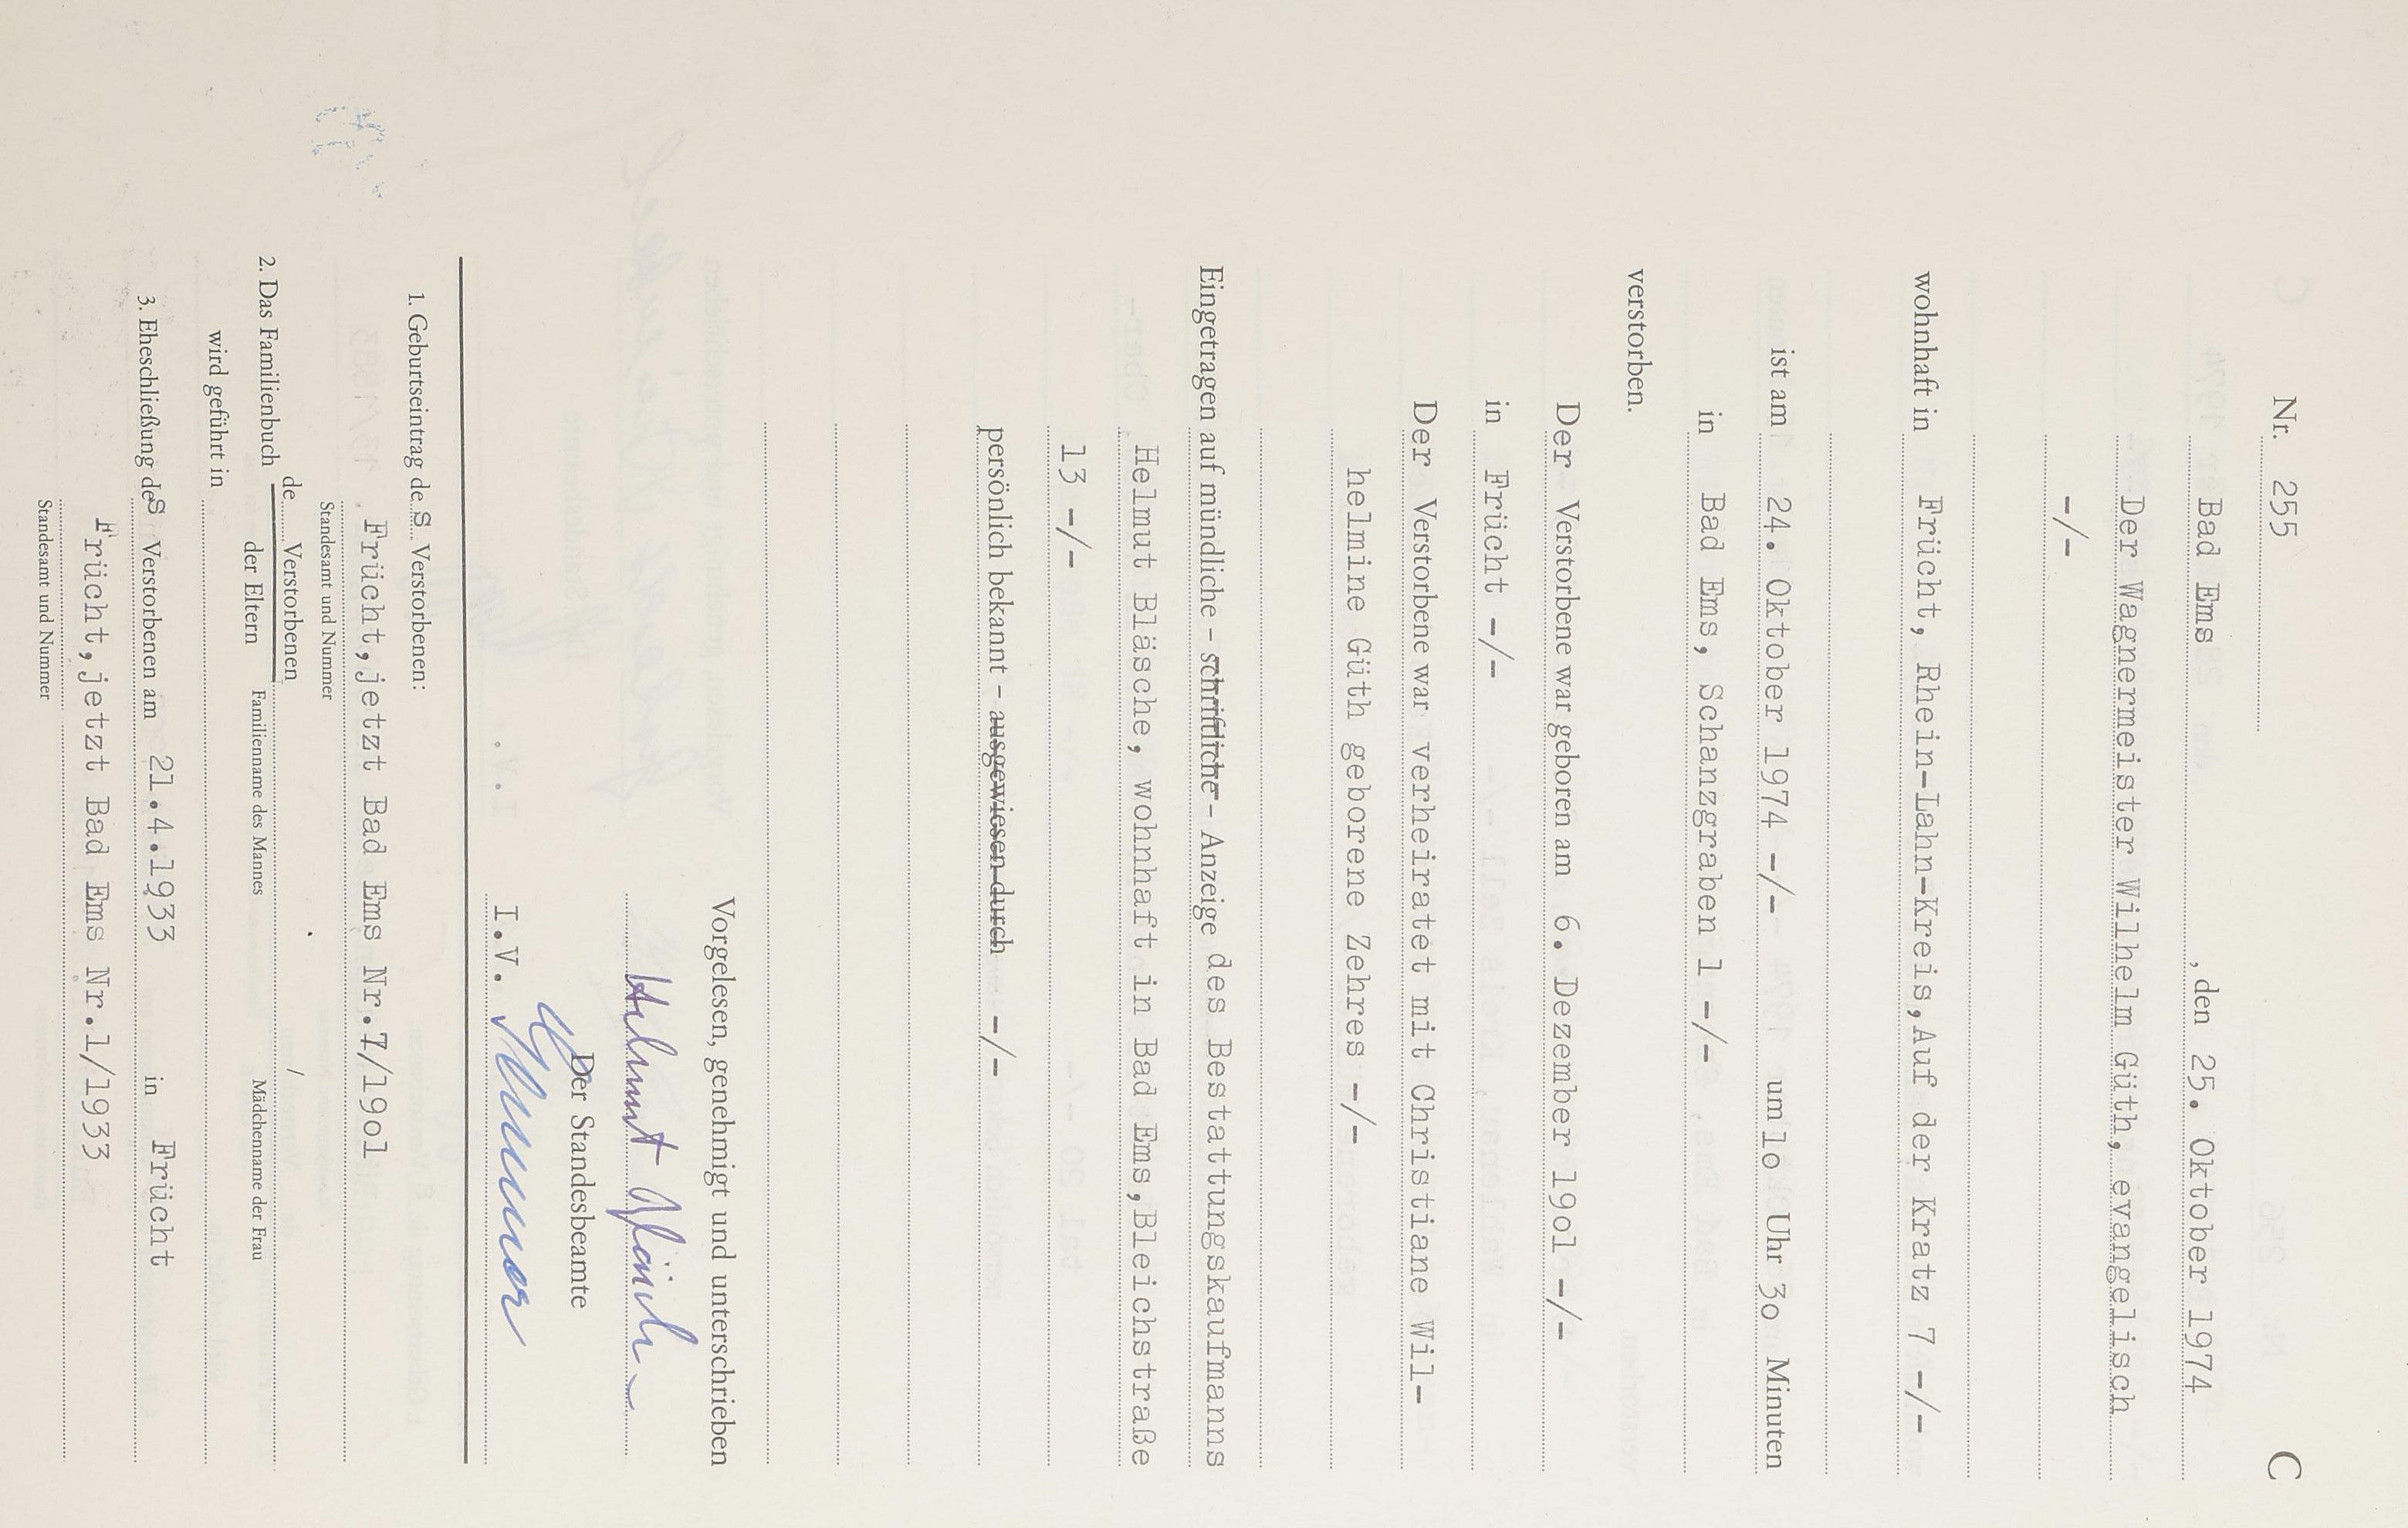 Nr. 255 C
Bad Ems , den 25. Oktober 1974
Der Wagnermeister Wilhelm Güth, evangelisch
-/-
wohnhaft in Frücht, Rhein-Lahn-Kreis,Auf der Kratz 7 -/-
ist am 24. Oktober 1974 -/- um lo Uhr 3o Minuten
in Bad Ems, Schanzgraben 1 -/-
verstorben.
Der Verstorbene war geboren am 6. Dezember 19o1 -/-
in Frücht -/-
Der Verstorbene war verheiratet mit Christiane Wil-
helmine Güth geborene Zehres -/-
Eingetragen auf mündliche - schriftliche - Anzeige des Bestattungskaufmanns
Helmut Bläsche, wohnhaft in Bad Ems,Bleichstraße
13 -/-
persönlich bekannt - ausgewiesen durch -/-
Vorgelesen, genehmigt und unterschrieben
Helmut Bläsche
Der Standesbeamte
I.V.
1. Geburtseintrag des Verstorbenen:
Frücht,jetzt Bad Ems Nr.7/19o1
Standesamt und Nummer
2. Das Familienbuch de Verstorbenen /
der Eltern Familienname des Mannes Mädchenname der Frau
wird geführt in
3. Eheschließung des Verstorbenen am 21.4.1933 in Frücht
Frücht,jetzt Bad Ems Nr.1/1933
Standesamt und Nummer